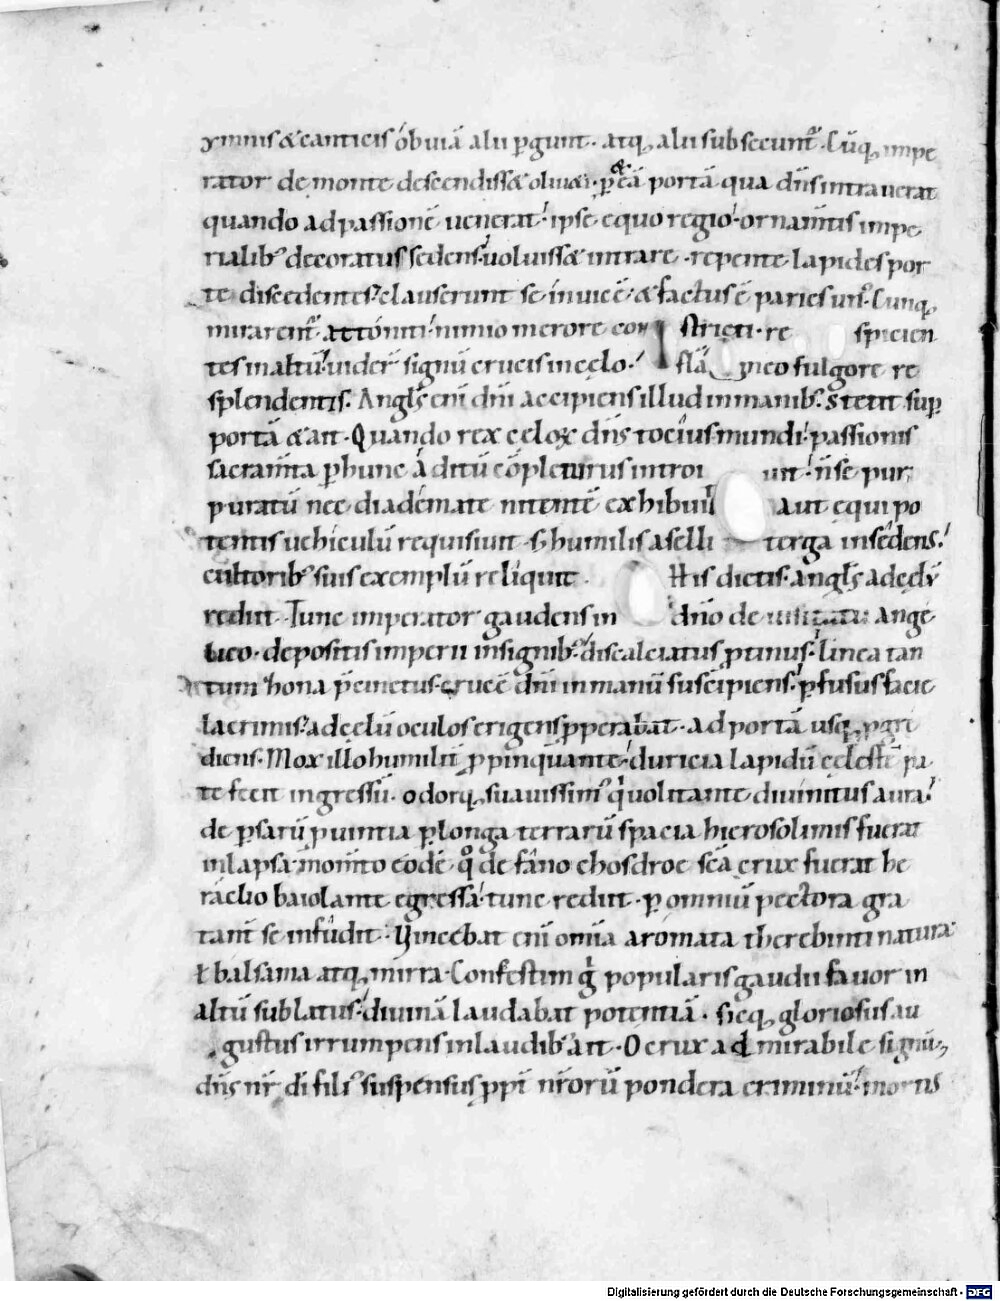 ymnis & canticis obuiā alii ꝑgunt · atq; alii subsecunt᷑ · Cūq; impe
rator de monte descendiss& oliuæ · ꝑ eā portā qua dn̄s intrauerat
quando ad passionē uenerat · ipse equo regio · ornam̄tis impe
rialib; decoratus sedens · uoluiss& intrare · repente lapides por
te discedentes · clauserunt se inuicē · & factus ē paries un᷒ · Cunq;
mirarent᷑ attoniti · nimio merore con stricti · re spicien
tes in altū · uider̄ signū crucis in cęlo · flāmeo fulgore re
splendentis · Angl̄s enī dn̄i accipiens illud in manib; · stetit sup̄
portā & ait · Quando rex cęlox dn̄s tocius mundi · passionis
sacram̄ta ꝑ hunc aditū cōpleturus introi uit · n̄ se pur
puratū nec diademate nitentē exhibuit aut equi po
tentis uehiculū requisiuit · s; humilis aselli terga insedens ·
cultorib; suis exemplū reliquit · His dictis · angl̄s ad cęlū
rediit · Tunc imperator gaudens in dn̄o de uisitatu ange
lico · depositis imperii insignib; · discalciatus ꝓtinus · linea tan
tum zona p̄cinctus · crucē dn̄i in manū suscipiens · ꝑfusus facie
lacrimis · ad cęlū oculos erigens ꝓperabat · ad portā usq; ꝓgre
diens · Mox illo humilit̄ ꝓpinquante · duricia lapidū cęlestē
te fecit ingressū · odorq; suauissim᷒ qͥ uolitante diuinitus aura ·
de ꝑsarū ꝓuintia ꝑ longa terrarū spacia hierosolimis fuerat
inlapsa · momto eodē qͦ de fano chosdroe sc̄a crux fuerat he
raclio baiolante egressa · tunc rediit · ꝑ omniū pectora gra
tant̄ se infudit · Vincebat enī omīa aromata therebinti natura
ł balsama atq; mirra · Confestim gͥ popularis gaudii fauor in
altū sublatus · diuinā laudabat potentiā · sicq; gloriosus au
gustus irrumpens in laudib; ait · O crux admirabile signū ·
dn̄s nr̄ di filī suspensus ꝓpt̄ nr̄orū pondera criminū · mortis
Digitalisierung gefördert durch die Deutsche Forschungsgemeinschaft - DFG